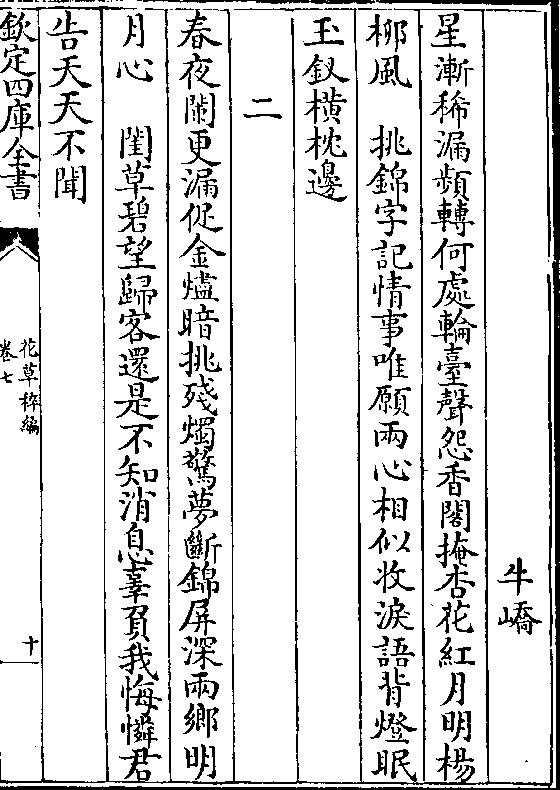 牛嶠
星漸稀漏頻轉何處輪臺聲怨香閣掩杏花紅月明楊
柳風　挑錦字記情事唯願兩心相似收淚語背燈眠
玉釵橫枕邊
二
春夜闌更漏促金燼暗挑殘燭驚夢斷錦屏深兩鄉明
月心　閨草碧望歸客還是不知消息辜負我悔憐君
告天天不聞
欽定四庫全書
花草稡編
卷七
十